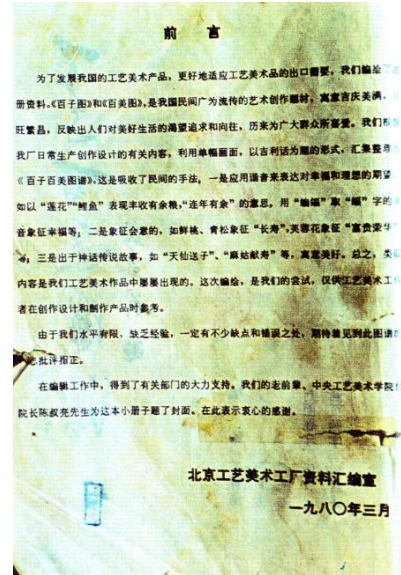 前言
为了发展我国的工艺美术产品，更好地适应工艺美术品的出口需要，我们编绘了这
册资料。《百子图》和《百美图》，是我国民间广为流传的艺术创作题材，寓意吉庆美满、
旺繁昌，反映出人们对美好生活的渴望追求和向往，历来为广大群众所喜爱。我们根据
我厂日常生产创作设计的有关内容，利用单幅画面，以吉利话为题的形式，汇集整理
《百子百美图谱》。这是吸收了民间的手法，一是应用谐音来表达对幸福和理想的期望
如以“莲花”“鲤鱼”表现丰收有余粮，“连年有余”的意思。用“蝙蝠”取“蝠”字的
音象征幸福等；二是象征会意的，如鲜桃、青松象征“长寿”，芙蓉花象征“富贵荣华”
等；三是出于神话传说故事，如“天仙送子”、“麻姑献寿”等，寓意美好。总之，类似
内容是我们工艺美术作品中屡屡出现的。这次编绘，是我们的尝试，仅供工艺美术工作
者在创作设计和制作产品时参考。
由于我们水平有限，缺乏经验，一定有不少缺点和错误之处，期待着见到此图谱的
批评指正。
在编辑工作中，得到了有关部门的大力支持。我们的老前辈、中央工艺美术学院
院长陈叔亮先生为这本小册子题了封面。在此表示衷心的感谢。
北京工艺美术工厂资料汇编室
一九八〇年三月